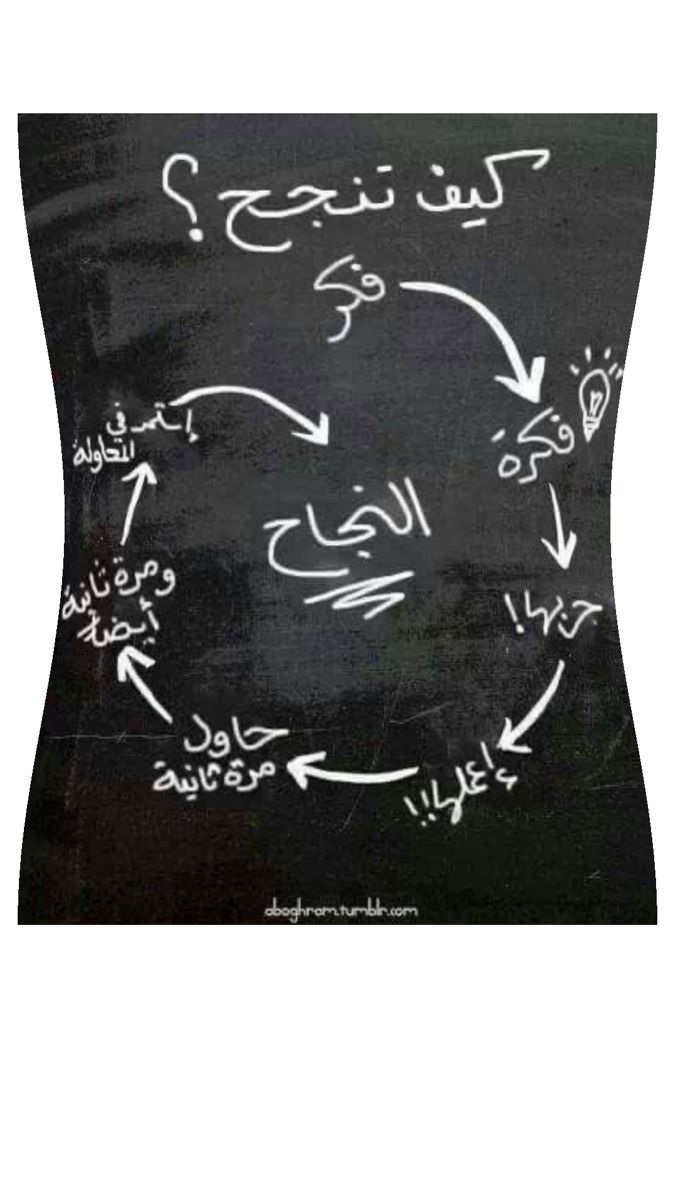 كيف تنجح ؟
فكر
فكرة
جربها !
إعملها !!
حاول
مرة ثانية
ومرة ثانية
أيضاً
إستمر في
المحاولة
النجاح
aboghram.tumblr.com